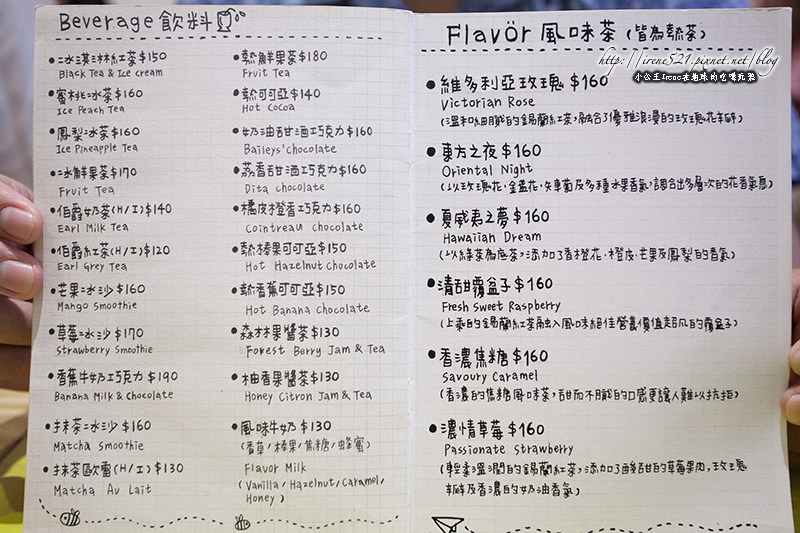 Beverage 飲料
冰淇淋紅茶 $150
Black Tea & Ice cream
蜜桃冰茶 $160
Ice Peach Tea
鳳梨冰茶 $160
Ice Pineapple Tea
冰鮮果茶 $170
Fruit Tea
伯爵奶茶(H/I) $140
Earl Milk Tea
伯爵紅茶(H/I) $120
Earl Grey Tea
芒果冰沙 $160
Mango Smoothie
草莓冰沙 $170
Strawberry Smoothie
香蕉牛奶巧克力 $190
Banana Milk & Chocolate
抹茶冰沙 $160
Matcha Smoothie
抹茶歐蕾(H/I) $130
Matcha Au Lait
熱鮮果茶 $180
Fruit Tea
熱可可亞 $140
Hot Cocoa
奶油甜酒巧克力 $160
Baileys' chocolate
荔香甜酒巧克力 $160
Dita chocolate
橘皮橙香巧克力 $160
Cointreau chocolate
熱榛果可可亞 $150
Hot Hazelnut Chocolate
熱香蕉可可亞 $150
Hot Banana Chocolate
森林果醬茶 $130
Forest Berry Jam & Tea
柚香果醬茶 $130
Honey Citron Jam & Tea
風味牛奶 $130
(香草/榛果/焦糖/蜂蜜)
Flavor Milk
(Vanilla/Hazelnut/Caramel/
Honey)
Flavör 風味茶 (皆為熱茶)
http://irene521.pixnet.net/blog
小公主Irene在地球的吃喝玩樂
維多利亞玫瑰 $160
Victorian Rose
(溫和細膩的錫蘭紅茶,融合了優雅浪漫的玫瑰花瓣)
東方之夜 $160
Oriental Night
(以玫瑰花.金盞花.矢車菊及多種水果香氣,調合出多層次的花香氣息)
夏威夷之夢 $160
Hawaiian Dream
(以綠茶為底茶,添加了香橙花.橙皮.芒果及鳳梨的香氣)
清甜覆盆子 $160
Fresh Sweet Raspberry
(上乘的錫蘭紅茶融入風味絕佳營養價值超凡的覆盆子)
香濃焦糖 $160
Savoury Caramel
(香濃的焦糖風味茶,甜而不膩的口感更讓人難以抗拒)
濃情草莓 $160
Passionate Strawberry
(輕柔溫潤的錫蘭紅茶,添加了酸甜的草莓果肉,玫瑰
花瓣及香濃的奶油香氣)